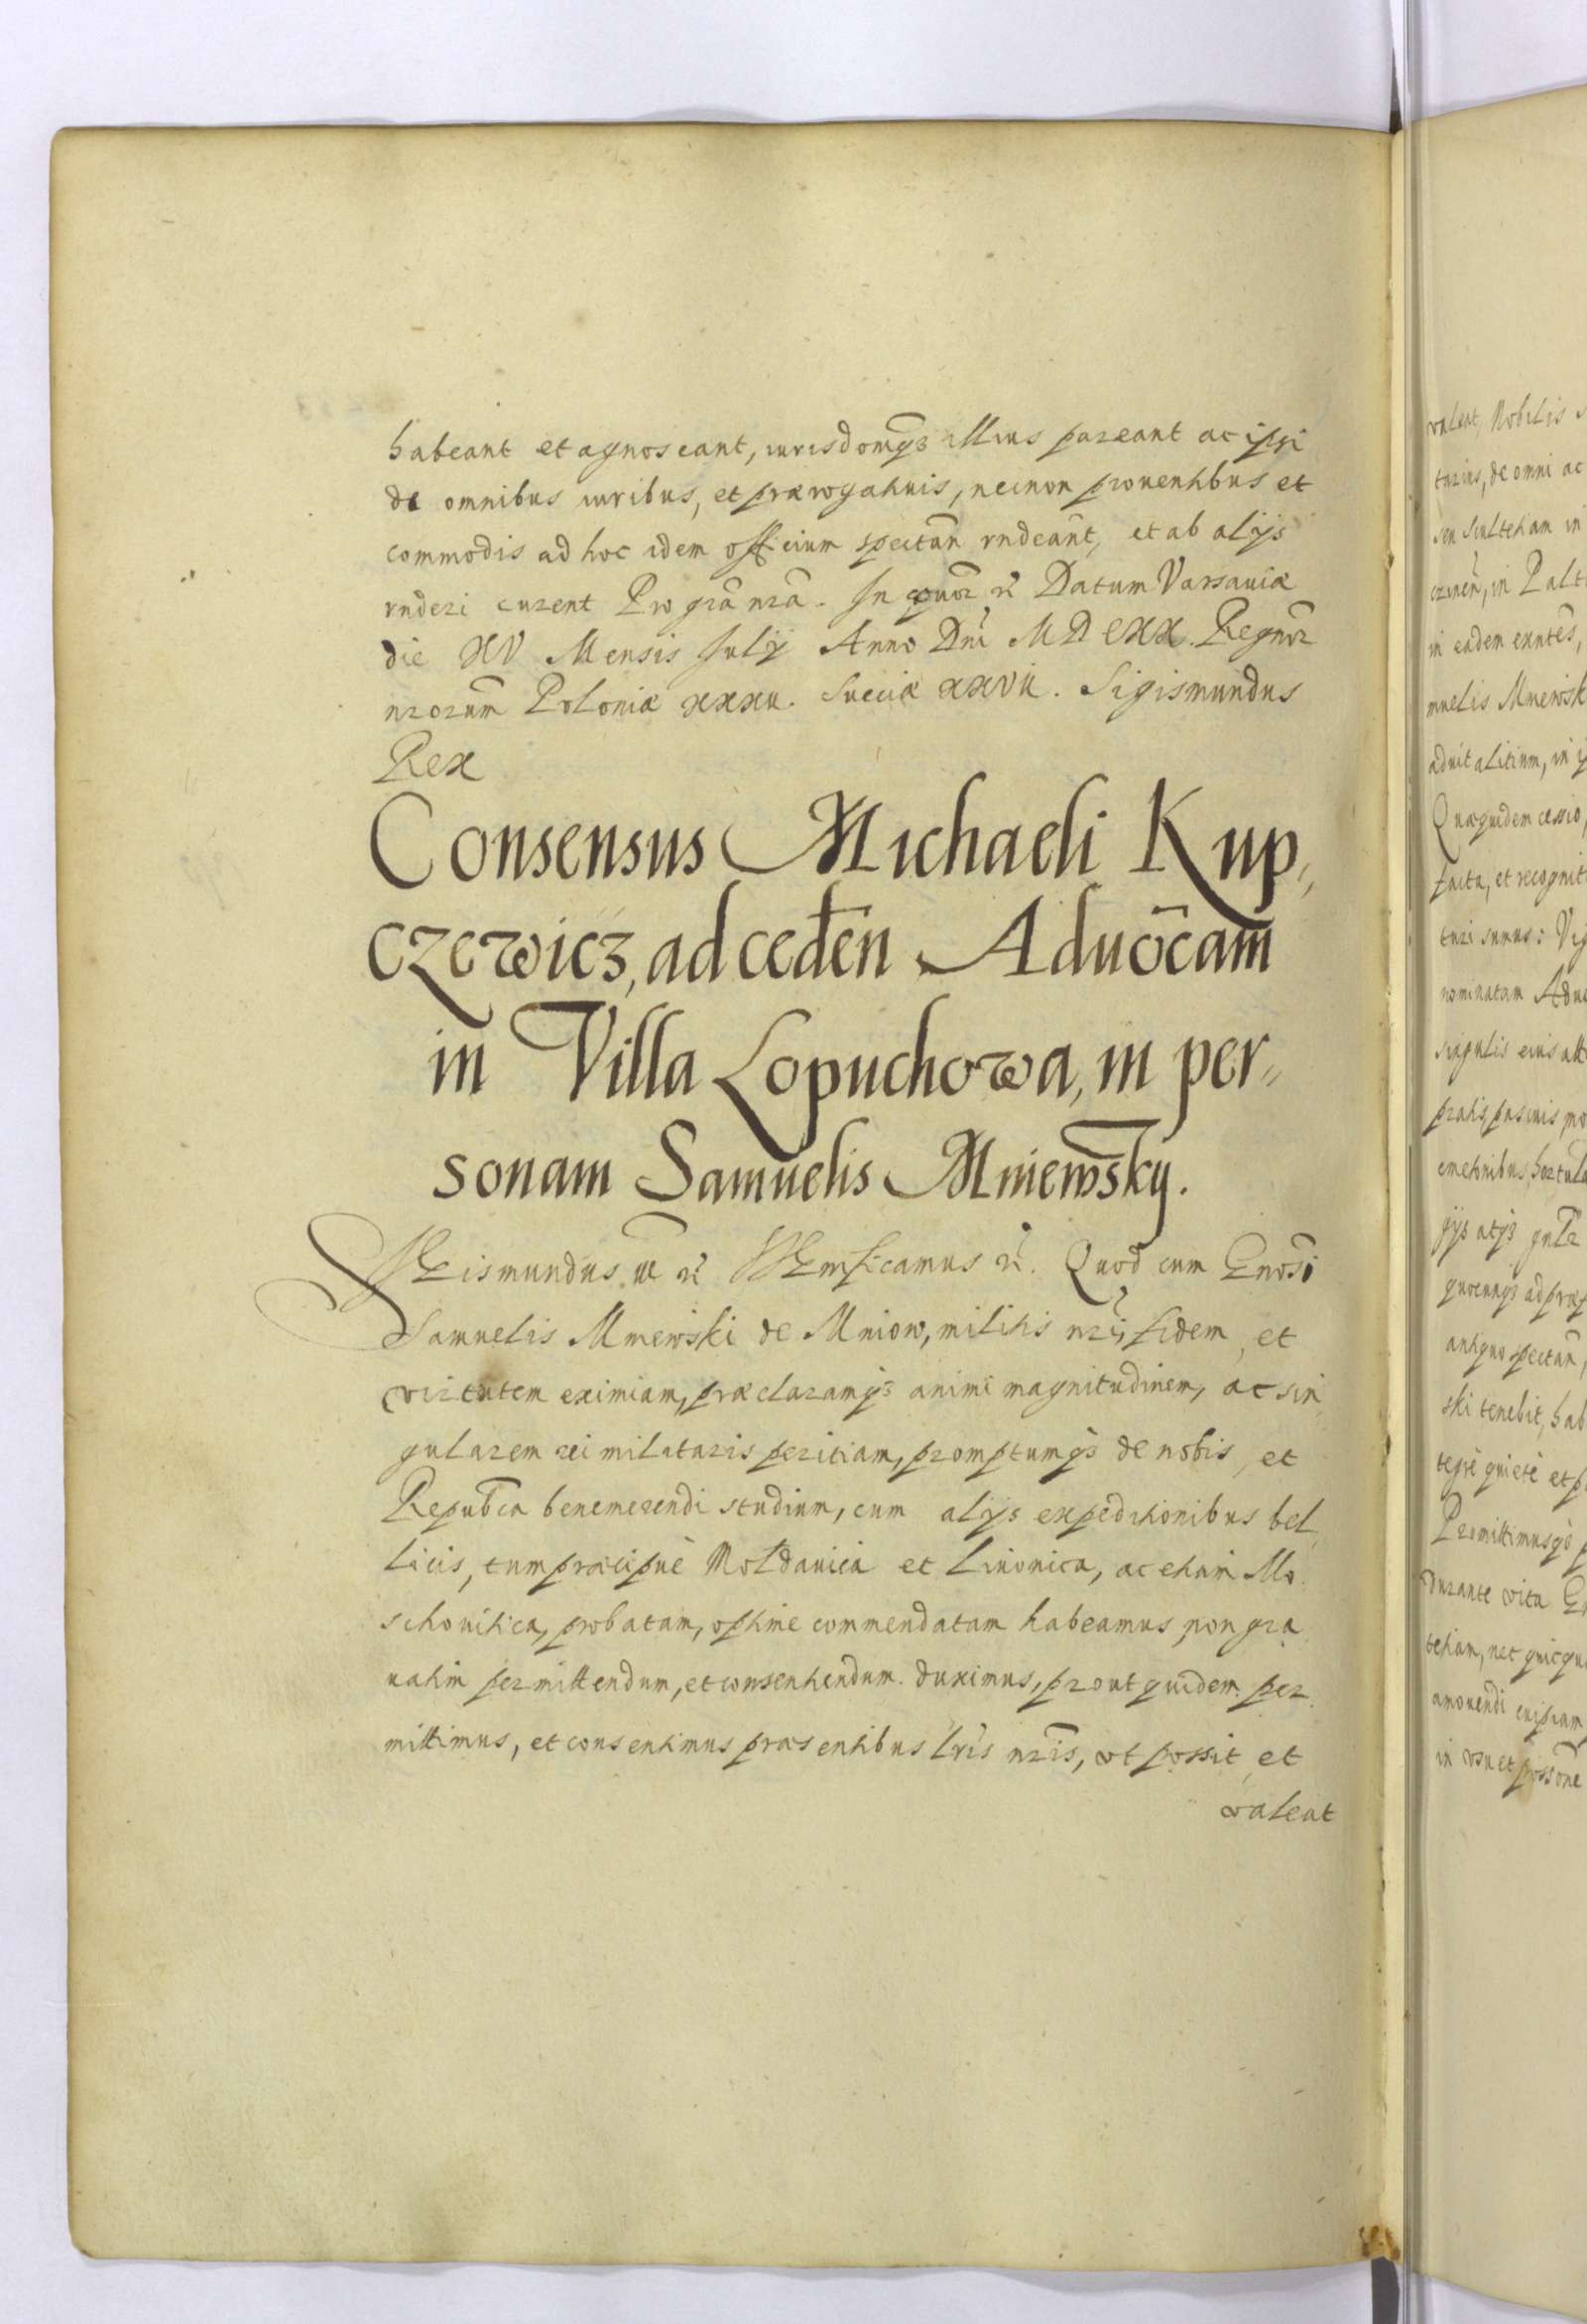 habeant et agnoscant, iurisdoniq3 illius pareant ac ipsi
de omnibus iuribus, et prærogatiuis, necnon prouentibus et
commodis ad hoc idem officium spectan̄ rndeant, et ab alijs
rnderi curent Pro gr̃a nr̃a. In quor̃ rei Datum Varsauiæ
die XV Mensis Julij Anno Dni MDCXX. Regnor̃
nrorum Poloniæ xxxii. Sueciæ xxvii. Sigismundus
Rex
Consensus Michaeli Kup„
czewicz, ad ceden̄ Aduōcam
in Villa Lopuchowa, in per„
sonam Samuelis Mniewsky.
Sigismundus III rc Significamus rc. Quod cum Gnosi
Samuelis Mniewski de Mniow, militis nri, fidem, et
virtutem eximiam, præclaramq3 animi magnitudinem, ac sin
gularem rei militaris peritiam, promptumq3 de nobis, et
Repubca benemerendi studium, cum alijs expeditionibus bel
licis, tum præcipuè Moldauica et Liuonica, ac etiam Mo
schouitica, probatam, optime commendatam habeamus, non gra
uatim permittendum, et consentiendum duximus, prout quidem per
mittimus, et consentimus præsentibus lris nris, vt possit, et
valeat
valeat, Nobilis
turius, de omni ac
seu Scultetiam in
in eadem exntes,
muelis Mniewsk
aduitalitium, in
Quæquidem cessio,
facta, et recognit
turi sumus: Vig
nominatam Aduo
singulis eius att
pratis, pascuis,
quocunq3 ad præf
antiquo spectan̄,
ski tenebit, hab
Promittimusq3 p
Durante vita G
tetiam, nec quicqu
amouendi cuipiam
in vsu et possone